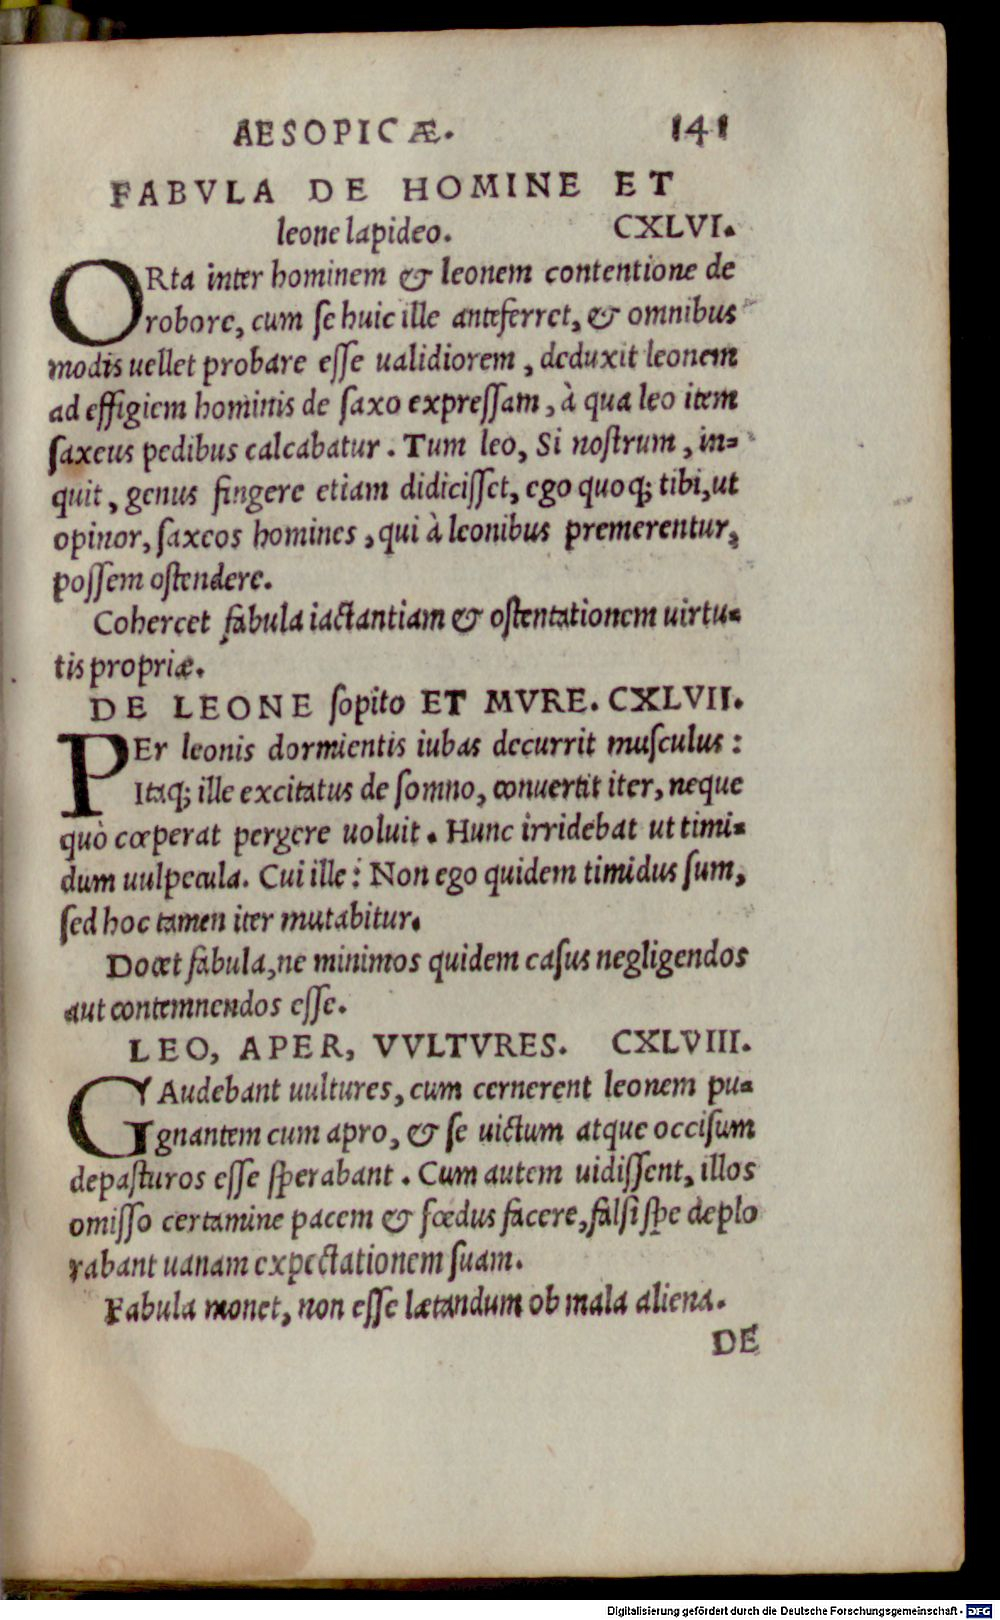 AESOPICÆ. 141
FABVLA DE HOMINE ET
leone lapideo. CXLVI.
ORta inter hominem & leonem contentione de
robore, cum se huic ille anteferret, & omnibus
modis uellet probare esse ualidiorem, deduxit leonem
ad effigiem hominis de saxo expressam, à qua leo item
saxeus pedibus calcabatur. Tum leo, Si nostrum, in-
quit, genus fingere etiam didicisset, ego quoq; tibi, ut
opinor, saxeos homines, qui à leonibus premerentur,
possem ostendere.
Cohercet fabula iactantiam & ostentationem uirtu-
tis propriæ.
DE LEONE sopito ET MVRE. CXLVII.
PEr leonis dormientis iubas decurrit musculus:
Itaq; ille excitatus de somno, conuertit iter, neque
quò cœperat pergere uoluit. Hunc irridebat ut timi-
dum uulpecula. Cui ille: Non ego quidem timidus sum,
sed hoc tamen iter mutabitur.
Docet fabula, ne minimos quidem casus negligendos
aut contemnendos esse.
LEO, APER, VVLTVRES. CXLVIII.
GAudebant uultures, cum cernerent leonem pu-
gnantem cum apro, & se uictum atque occisum
depasturos esse sperabant. Cum autem uidissent, illos
omisso certamine pacem & fœdus facere, falsi spe deplo
rabant uanam expectationem suam.
Fabula monet, non esse lætandum ob mala aliena.
DE
Digitalisierung gefördert durch die Deutsche Forschungsgemeinschaft - DFG